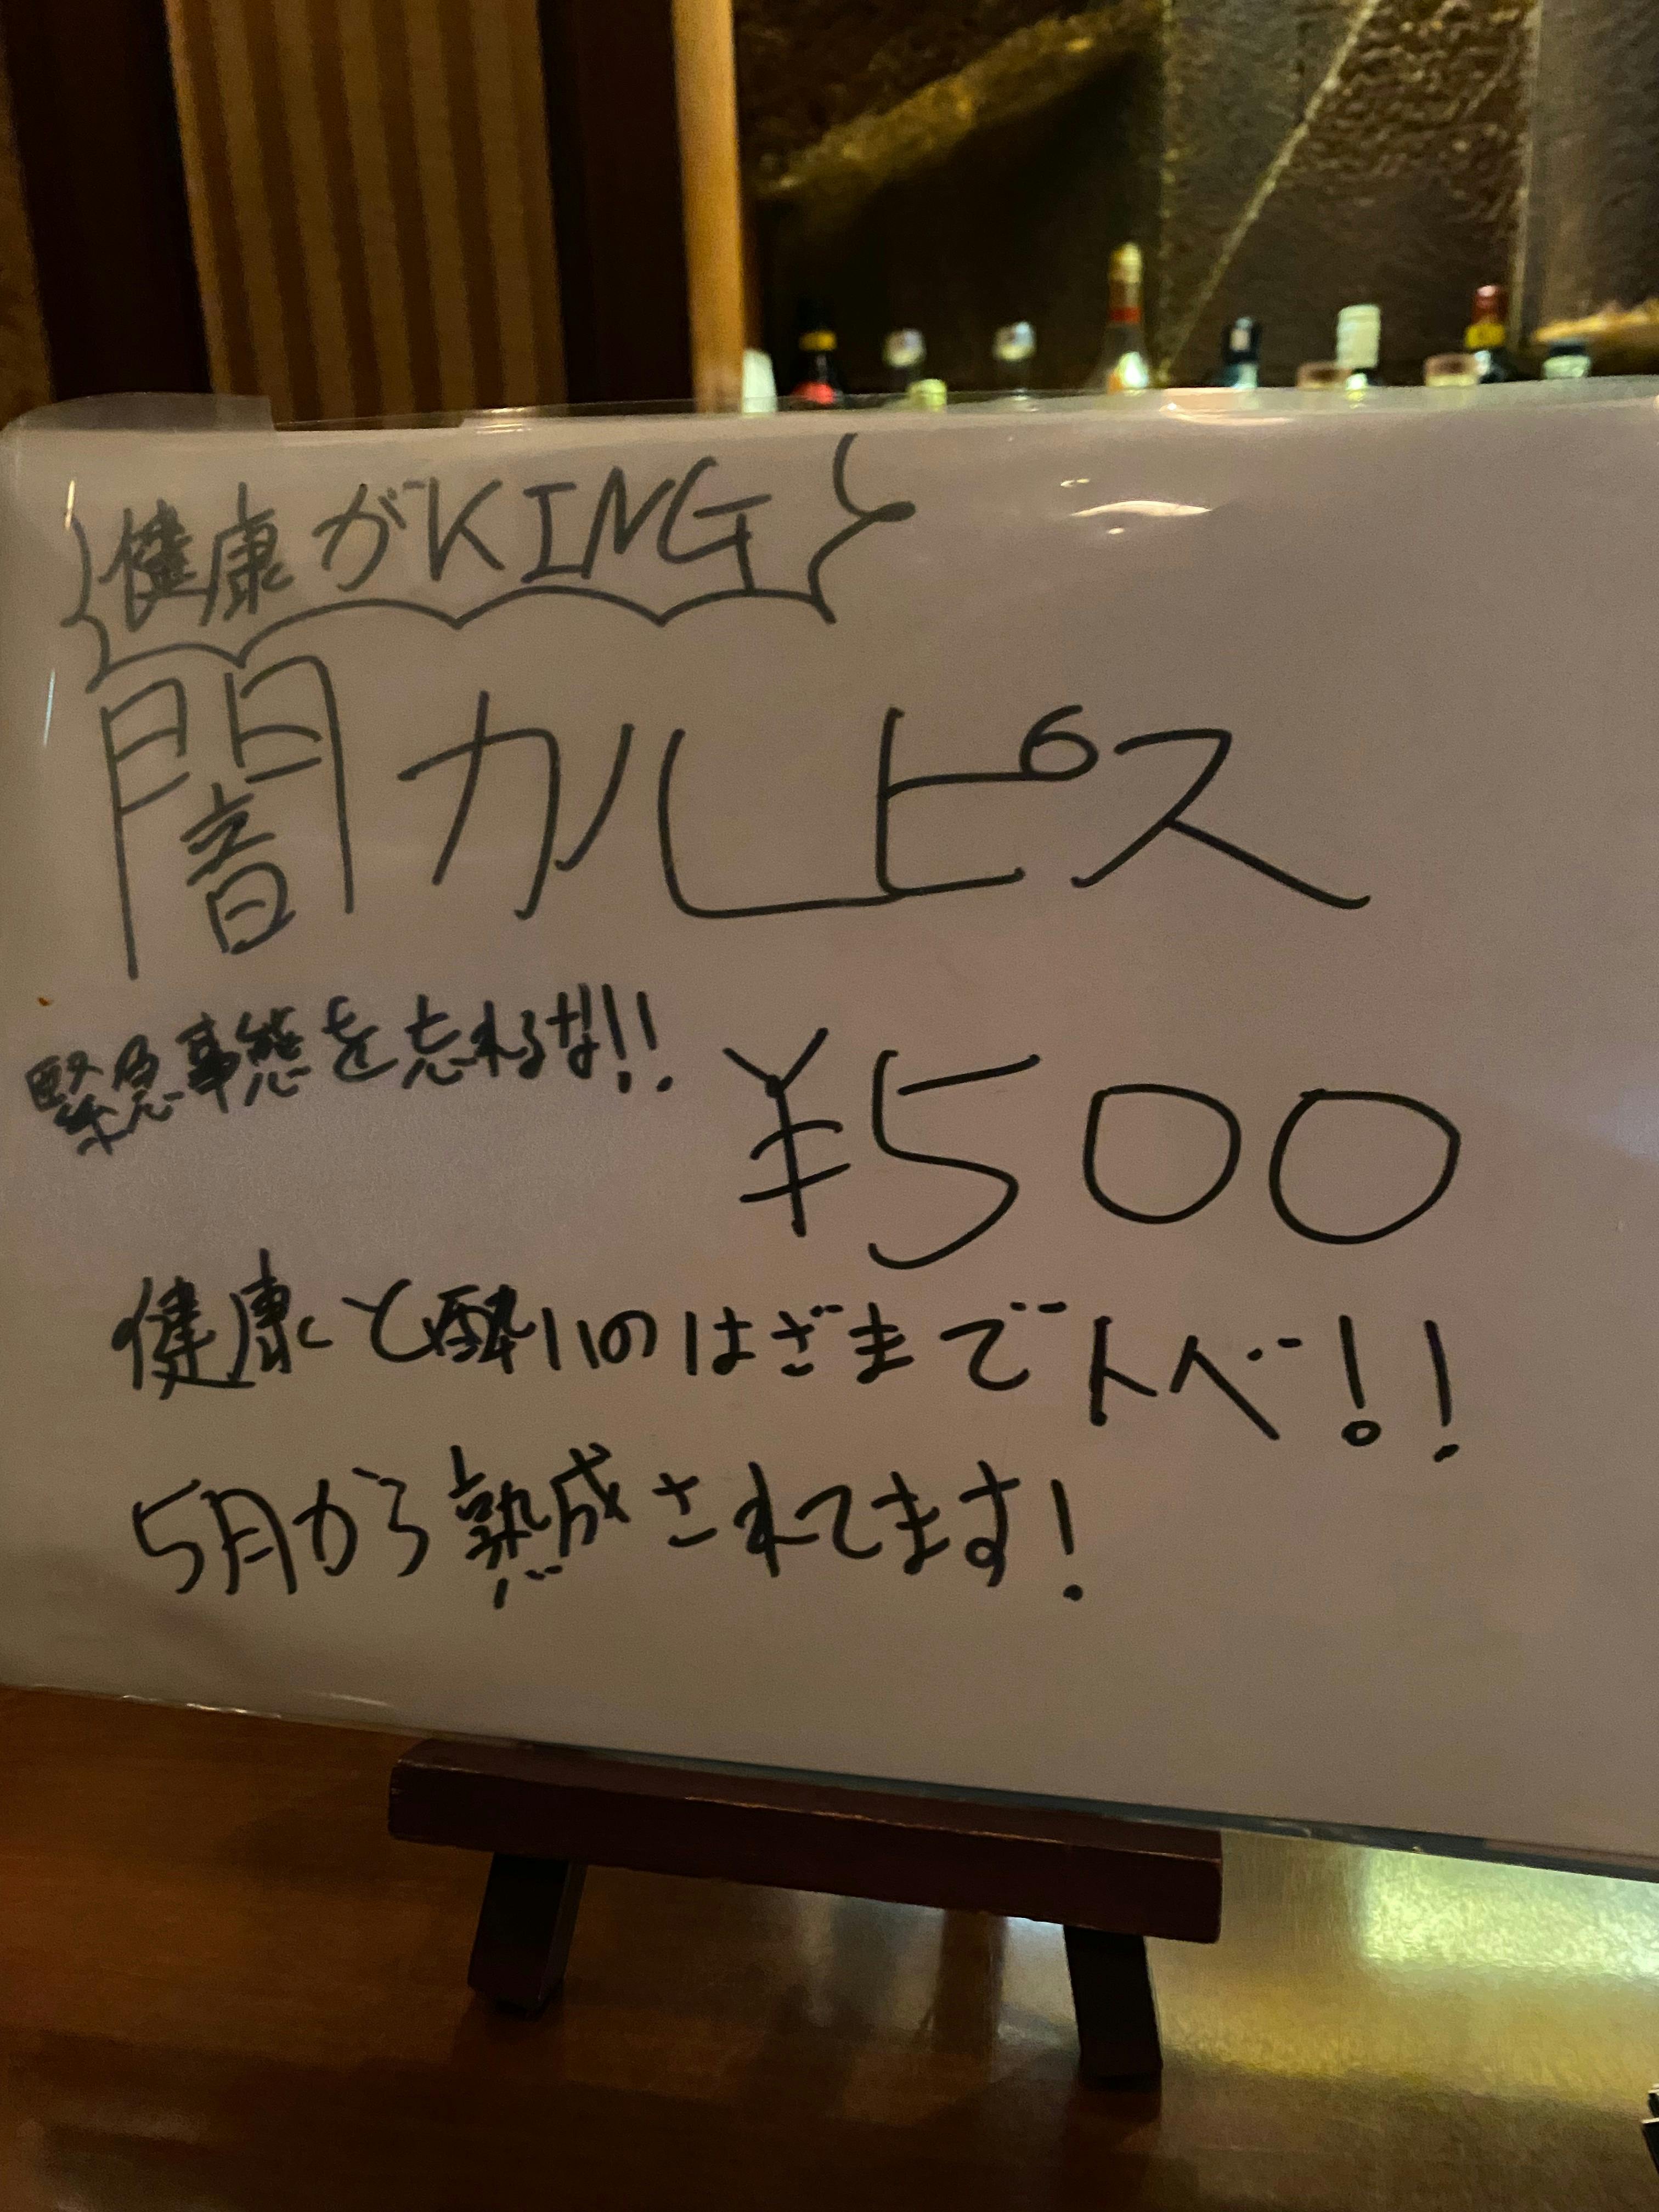 健康がKING
闇カルピス
緊急事態を忘れるな!!
¥500
健康と酔いのはざまでトベ!!
5月から熟成されてます!